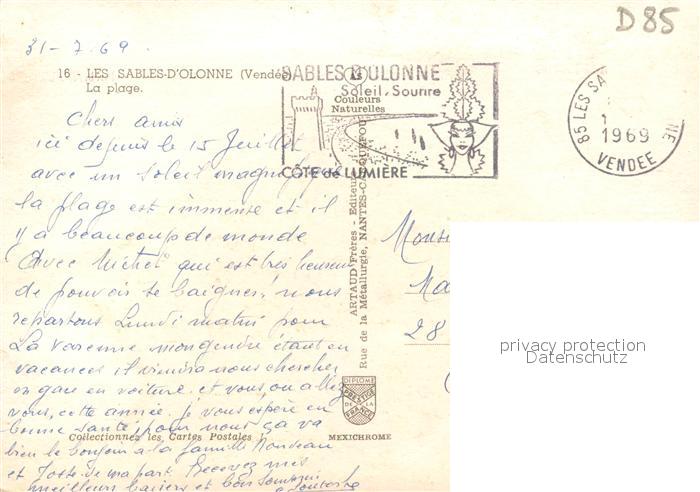 D85
31-7.69.
16 - LES SABLES-D'OLONNE (Vendée)
La plage.
SABLES D'OLONNE
Soleil. Sourire
Couleurs
Naturelles
CÔTE de LUMIÈRE
85 LES SA NE
1969
VENDEE
Chers amis
ici depuis le 15 Juillet
avec un soleil magnifique
la plage est immense et il
y a beaucoup de monde
Avec Michel qui est très heureux
de pouvoir se baigner, nous
repartons Lundi matin pour
La Varenne mon gendre étant en
vacances il viendra nous chercher
en gare en voiture. et vous, ou allez
vous, cette année. je vous espère en
bonne santé, pour nous ça va
bien le bonjour a la famille
et de ma part. Recevez mes
meilleurs baisers et bon souvenir
ARTAUD Frères - Editeurs
Rue de la Métallurgie, NANTES-CARQUEFOU
Monsi
Ma
28
privacy protection
Datenschutz
DIPLOME
PRESTIGE
DE LA
FRANCE
Collectionnez les Cartes Postales !
MEXICHROME